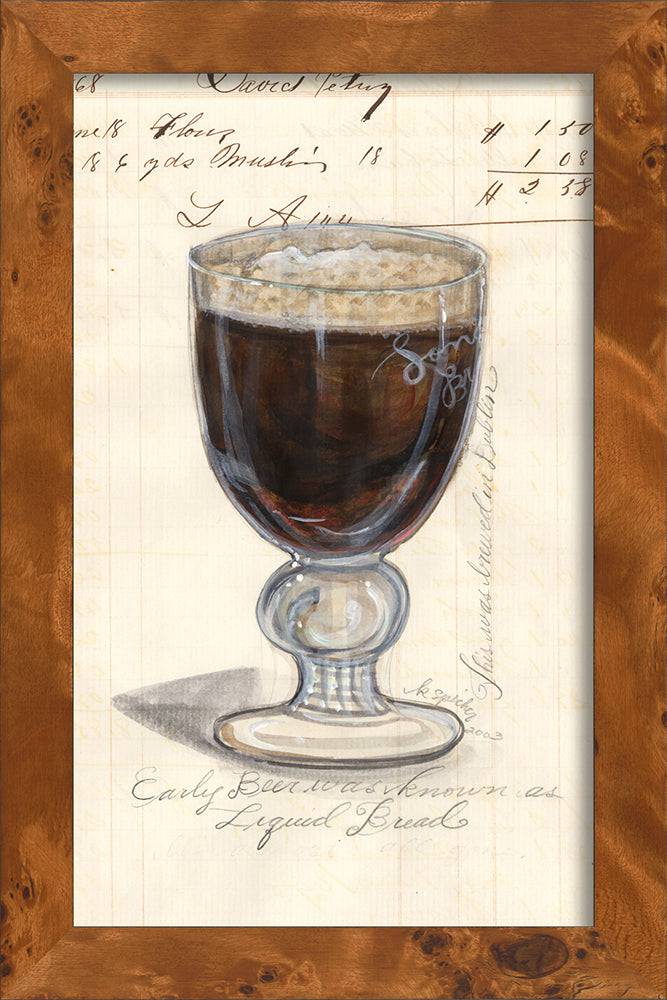 68 David Petry
18 Flour $ 1 50
18 6 yds Muslin 18 1 08
$ 2 58
This was brewed in Dublin
k Spicher
2002
Early Beer was known as
Liquid Bread